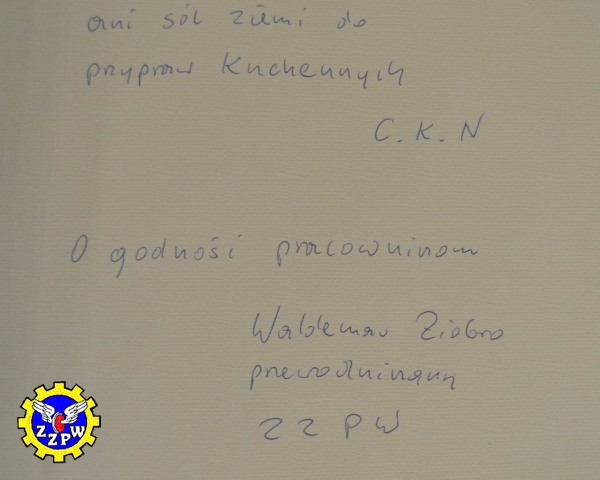 ani sól ziemi do
przypraw Kuchennych
C. K. N
O godności pracowninom
Waldemar Ziobro
przewodniczący
ZZPW
ZZPW